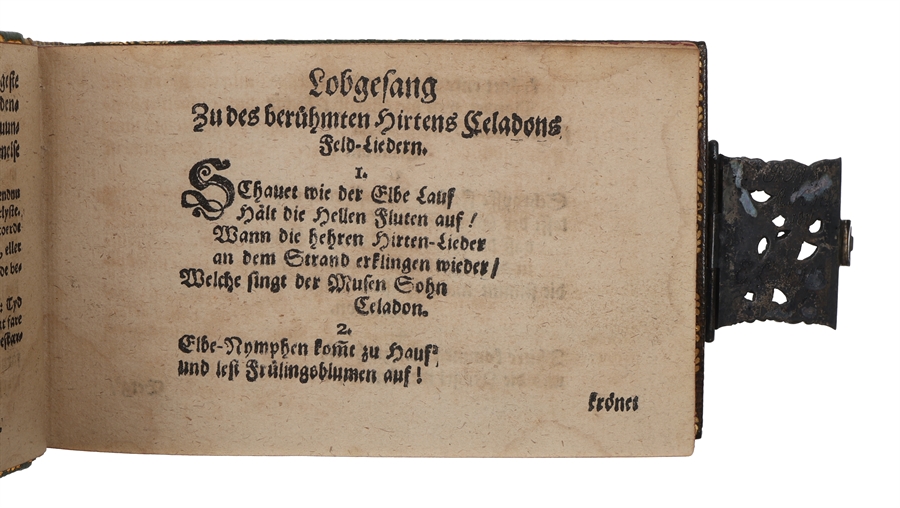 geste
den-
uun-
melse
endnu
elyste,
oerde
, eller
de be-
: Tyd
at fare
Lobgesang
Zu des berühmten Hirtens Celadons
Feld-Liedern.
1.
SChauet wie der Elbe Lauf
Hält die Hellen Fluten auf!
Wann die hehren Hirten-Lieder
an dem Strand erklingen wieder/
Welche singt der Musen Sohn
Celadon.
2.
Elbe-Nymphen kom̃t zu Hauf,
und lest Frülingsblumen auf!
krönet